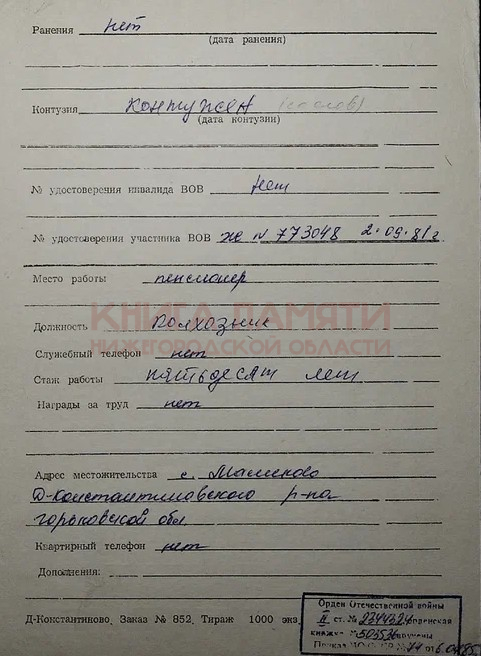 Ранения нет
(дата ранения)
Контузия контужен (со слов)
(дата контузии)
№ удостоверения инвалида ВОВ нет
№ удостоверения участника ВОВ Ж N 773048 2.09.81г
Место работы пенсионер
КНИГА ПАМЯТИ
Должность колхозник
НИЖЕГОРОДСКОЙ ОБЛАСТИ
Служебный телефон нет
Стаж работы пятьдесят лет
Награды за труд нет
Адрес местожительства с.
Д-Константиновского р-на
горьковской обл
Квартирный телефон нет
Дополнения:
Д-Константиново, Заказ № 852, Тираж 1000 экз
Орден Отечественной войны
II ст. № орденская
книжка № вручены
Приказ № 74 от